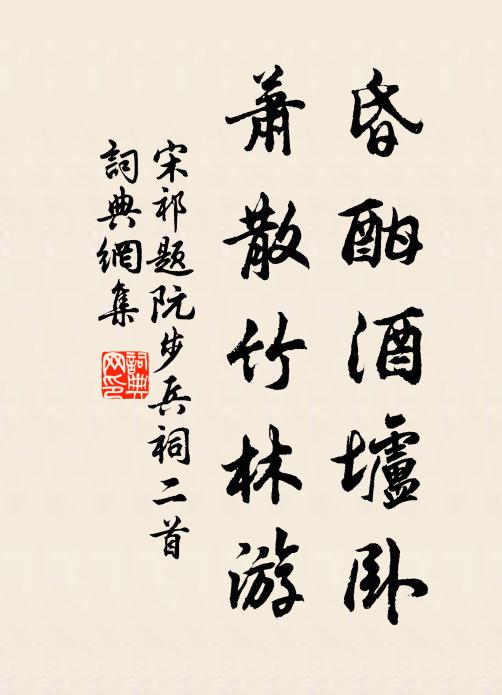 昏酣酒壚臥
蕭散竹林游
宋祁題阮步兵祠二首
詞典網集
詞典网印